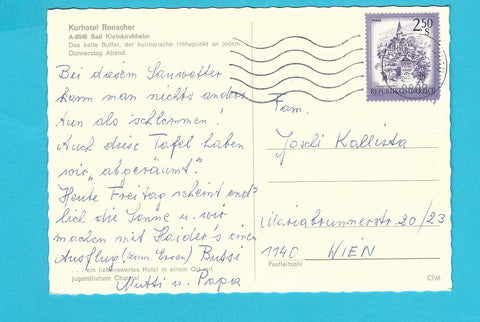 Kurhotel Ronacher
A-9546 Bad Kleinkirchheim
Das kalte Buffet, der kulinarische Höhepunkt an jedem
Donnerstag Abend.
Bei diesem Sauwetter
kann man nichts anders
tun als schlemmen!
Auch diese Tafel haben
wir "abgeräumt".
Heute Freitag scheint end=
lich die Sonne u. wir
machen mit Haider's einen
Ausflug (zum Essen) Bussi
Mutti u. Papa
. . . ein liebenswertes Hotel in einem Ort mit
jugendlichem Charme
2.50
S
REPUBLIK ÖSTERREICH
Fam.
Joschi Kallista
Mariabrunnerstr. 20/23
1140 WIEN
Postleitzahl
CFM